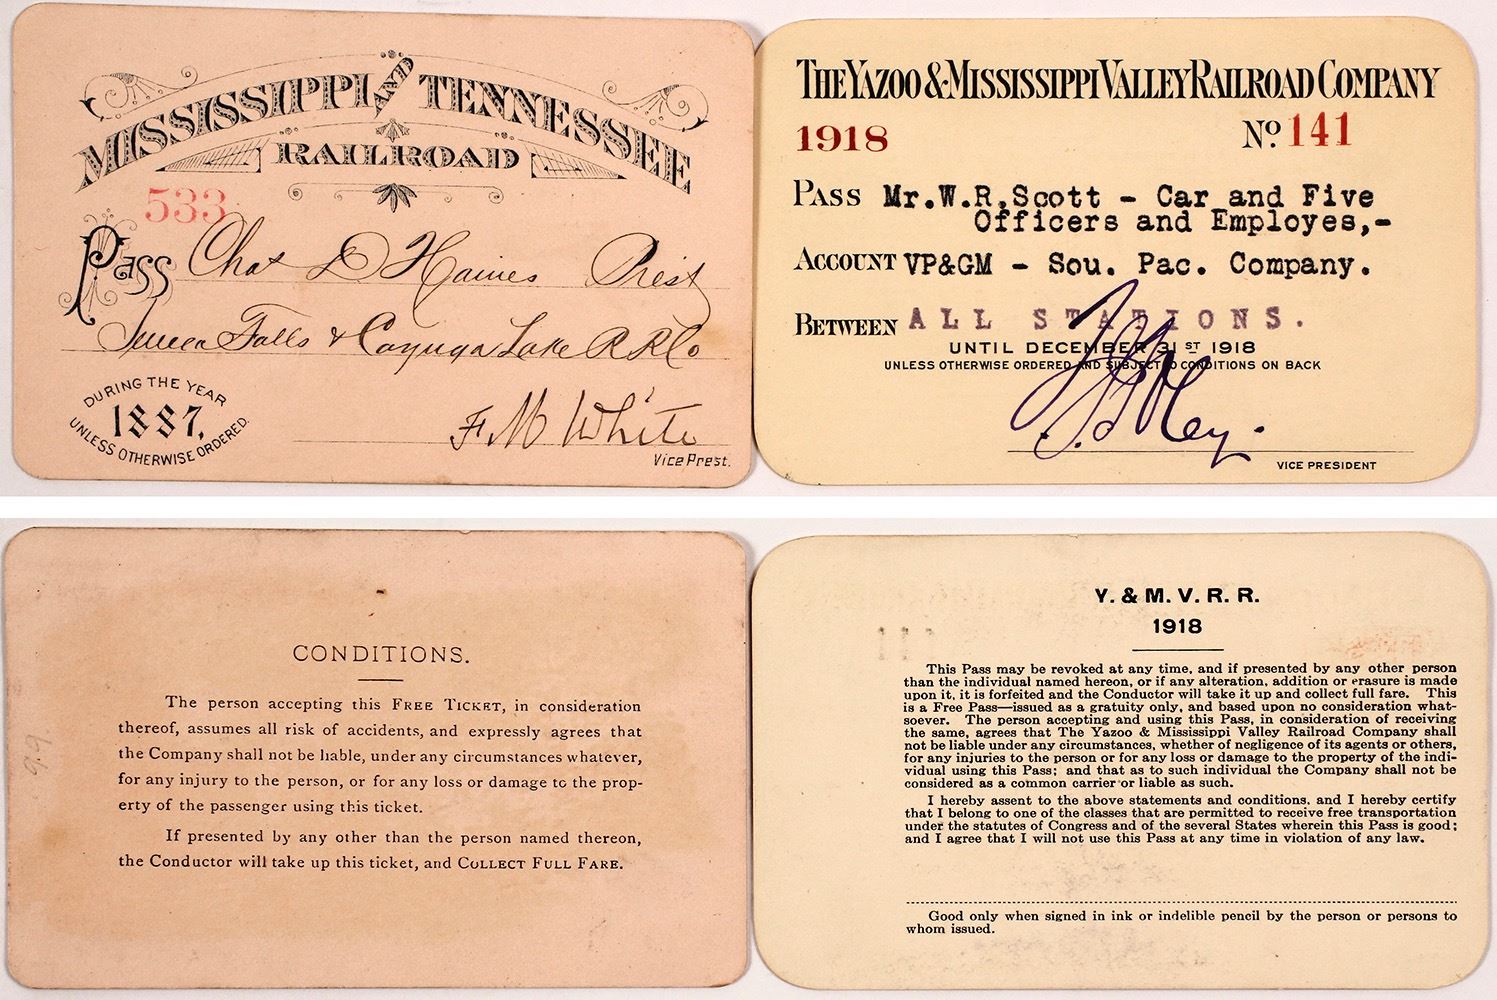 MISSISSIPPI AND TENNESSEE
RAILROAD
533
Pass Chas D Haines Prest
Seneca Falls & Cayuga Lake R R Co
DURING THE YEAR
1887,
UNLESS OTHERWISE ORDERED.
F. M White
Vice Prest.
THE YAZOO & MISSISSIPPI VALLEY RAILROAD COMPANY
1918 No 141
PASS Mr.W.R.Scott - Car and Five
Officers and Employes,-
ACCOUNT VP&GM - Sou. Pac. Company.
BETWEEN ALL STATIONS.
UNTIL DECEMBER 31 ST 1918
UNLESS OTHERWISE ORDERED AND SUBJECT TO CONDITIONS ON BACK
VICE PRESIDENT
9.9.
CONDITIONS.
The person accepting this FREE TICKET, in consideration
thereof, assumes all risk of accidents, and expressly agrees that
the Company shall not be liable, under any circumstances whatever,
for any injury to the person, or for any loss or damage to the prop-
erty of the passenger using this ticket.
If presented by any other than the person named thereon,
the Conductor will take up this ticket, and COLLECT FULL FARE.
Y. & M. V. R. R.
1918
This Pass may be revoked at any time, and if presented by any other person
than the individual named hereon, or if any alteration, addition or erasure is made
upon it, it is forfeited and the Conductor will take it up and collect full fare. This
is a Free Pass—issued as a gratuity only, and based upon no consideration what-
soever. The person accepting and using this Pass, in consideration of receiving
the same, agrees that The Yazoo & Mississippi Valley Railroad Company shall
not be liable under any circumstances, whether of negligence of its agents or others,
for any injuries to the person or for any loss or damage to the property of the indi-
vidual using this Pass; and that as to such individual the Company shall not be
considered as a common carrier or liable as such.
I hereby assent to the above statements and conditions, and I hereby certify
that I belong to one of the classes that are permitted to receive free transportation
under the statutes of Congress and of the several States wherein this Pass is good;
and I agree that I will not use this Pass at any time in violation of any law.
Good only when signed in ink or indelible pencil by the person or persons to
whom issued.